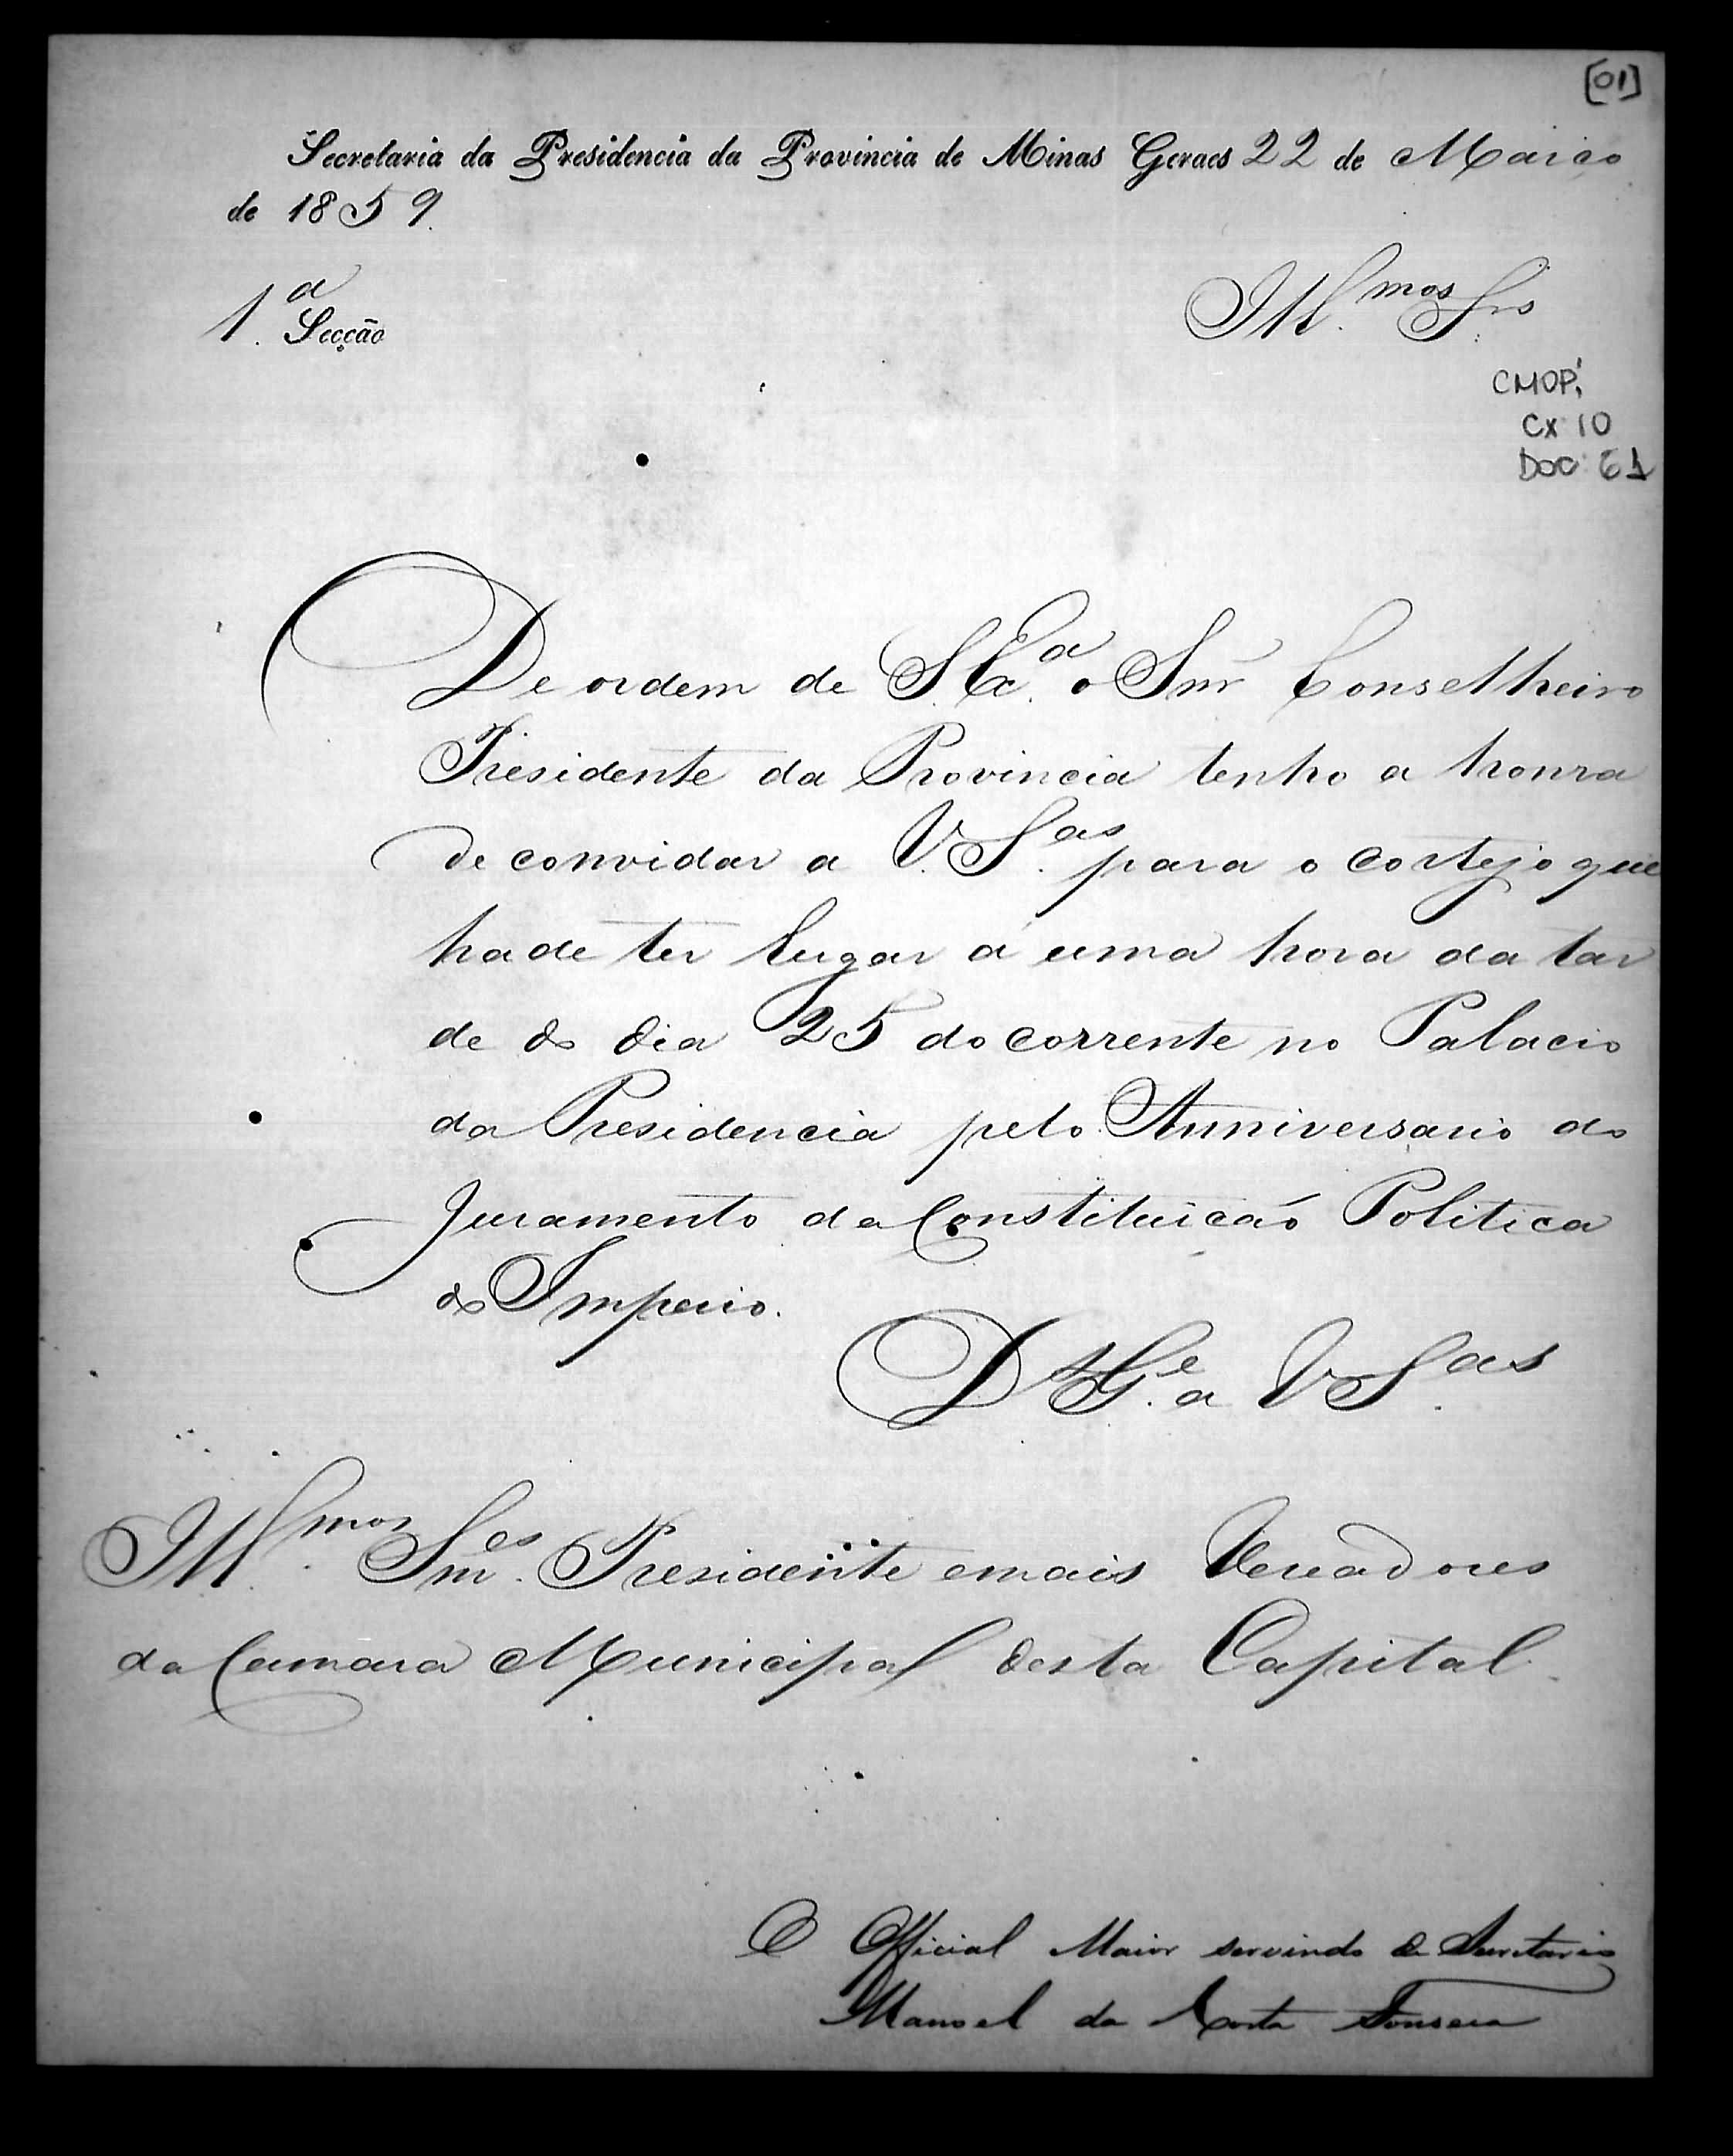 [01]
Secretaria da Presidencia da Provincia de Minas Geraes 22 de Março
de 1859.
1.ª Secção
Ill.mos Srs
CMOP:
Cx 10
Doc: 61
De ordem de S. Exª o Snr Conselheiro
Presidente da Provincia tenho a honra
de convidar a V. S.as para o cortejo que
hade ter lugar á uma hora da tar
de do dia 25 do corrente no Palacio
da Presidencia pelo Anniversario do
Juramento da Constituicaó Politica
do Imperio.
Ds G.e a V S.as
Ill.mos Snres. Presidente emais Vereadores
da Camara Municipal desta Capital.
O Official Maior servindo de Secretario
Manoel da Costa Fonseca